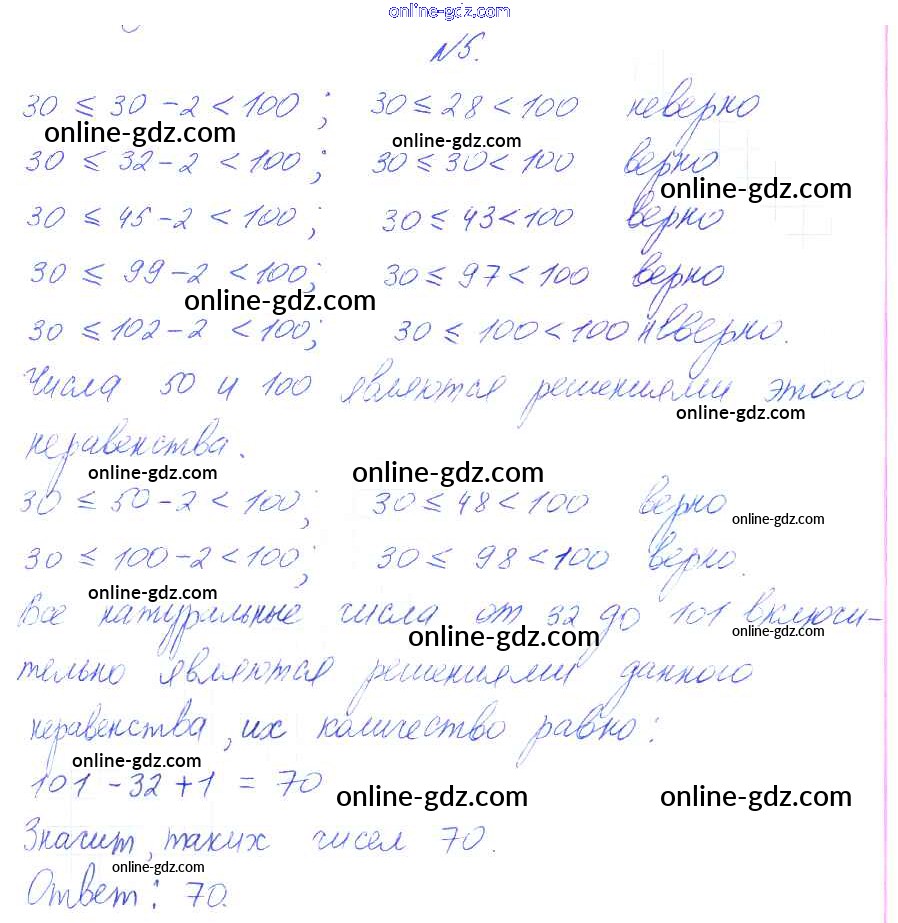 online-gdz.com
№5.
30 ≤ 30 – 2 < 100 ; 30 ≤ 28 < 100 неверно
online-gdz.com online-gdz.com
30 ≤ 32 – 2 < 100 ; 30 ≤ 30 < 100 верно
online-gdz.com
30 ≤ 45 – 2 < 100 ; 30 ≤ 43 < 100 верно
30 ≤ 99 – 2 < 100; 30 ≤ 97 < 100 верно
online-gdz.com
30 ≤ 102 – 2 < 100; 30 ≤ 100 < 100 неверно.
Числа 50 и 100 являются решениями этого
online-gdz.com
неравенства.
online-gdz.com online-gdz.com
30 ≤ 50 – 2 < 100; 30 ≤ 48 < 100 верно
online-gdz.com
30 ≤ 100 – 2 < 100; 30 ≤ 98 < 100 верно.
online-gdz.com
Все натуральные числа от 32 до 101 включи-
online-gdz.com online-gdz.com
тельно являются решениями данного
неравенства, их количество равно:
online-gdz.com
101 – 32 + 1 = 70
online-gdz.com online-gdz.com
Значит, таких чисел 70.
online-gdz.com
Ответ: 70.